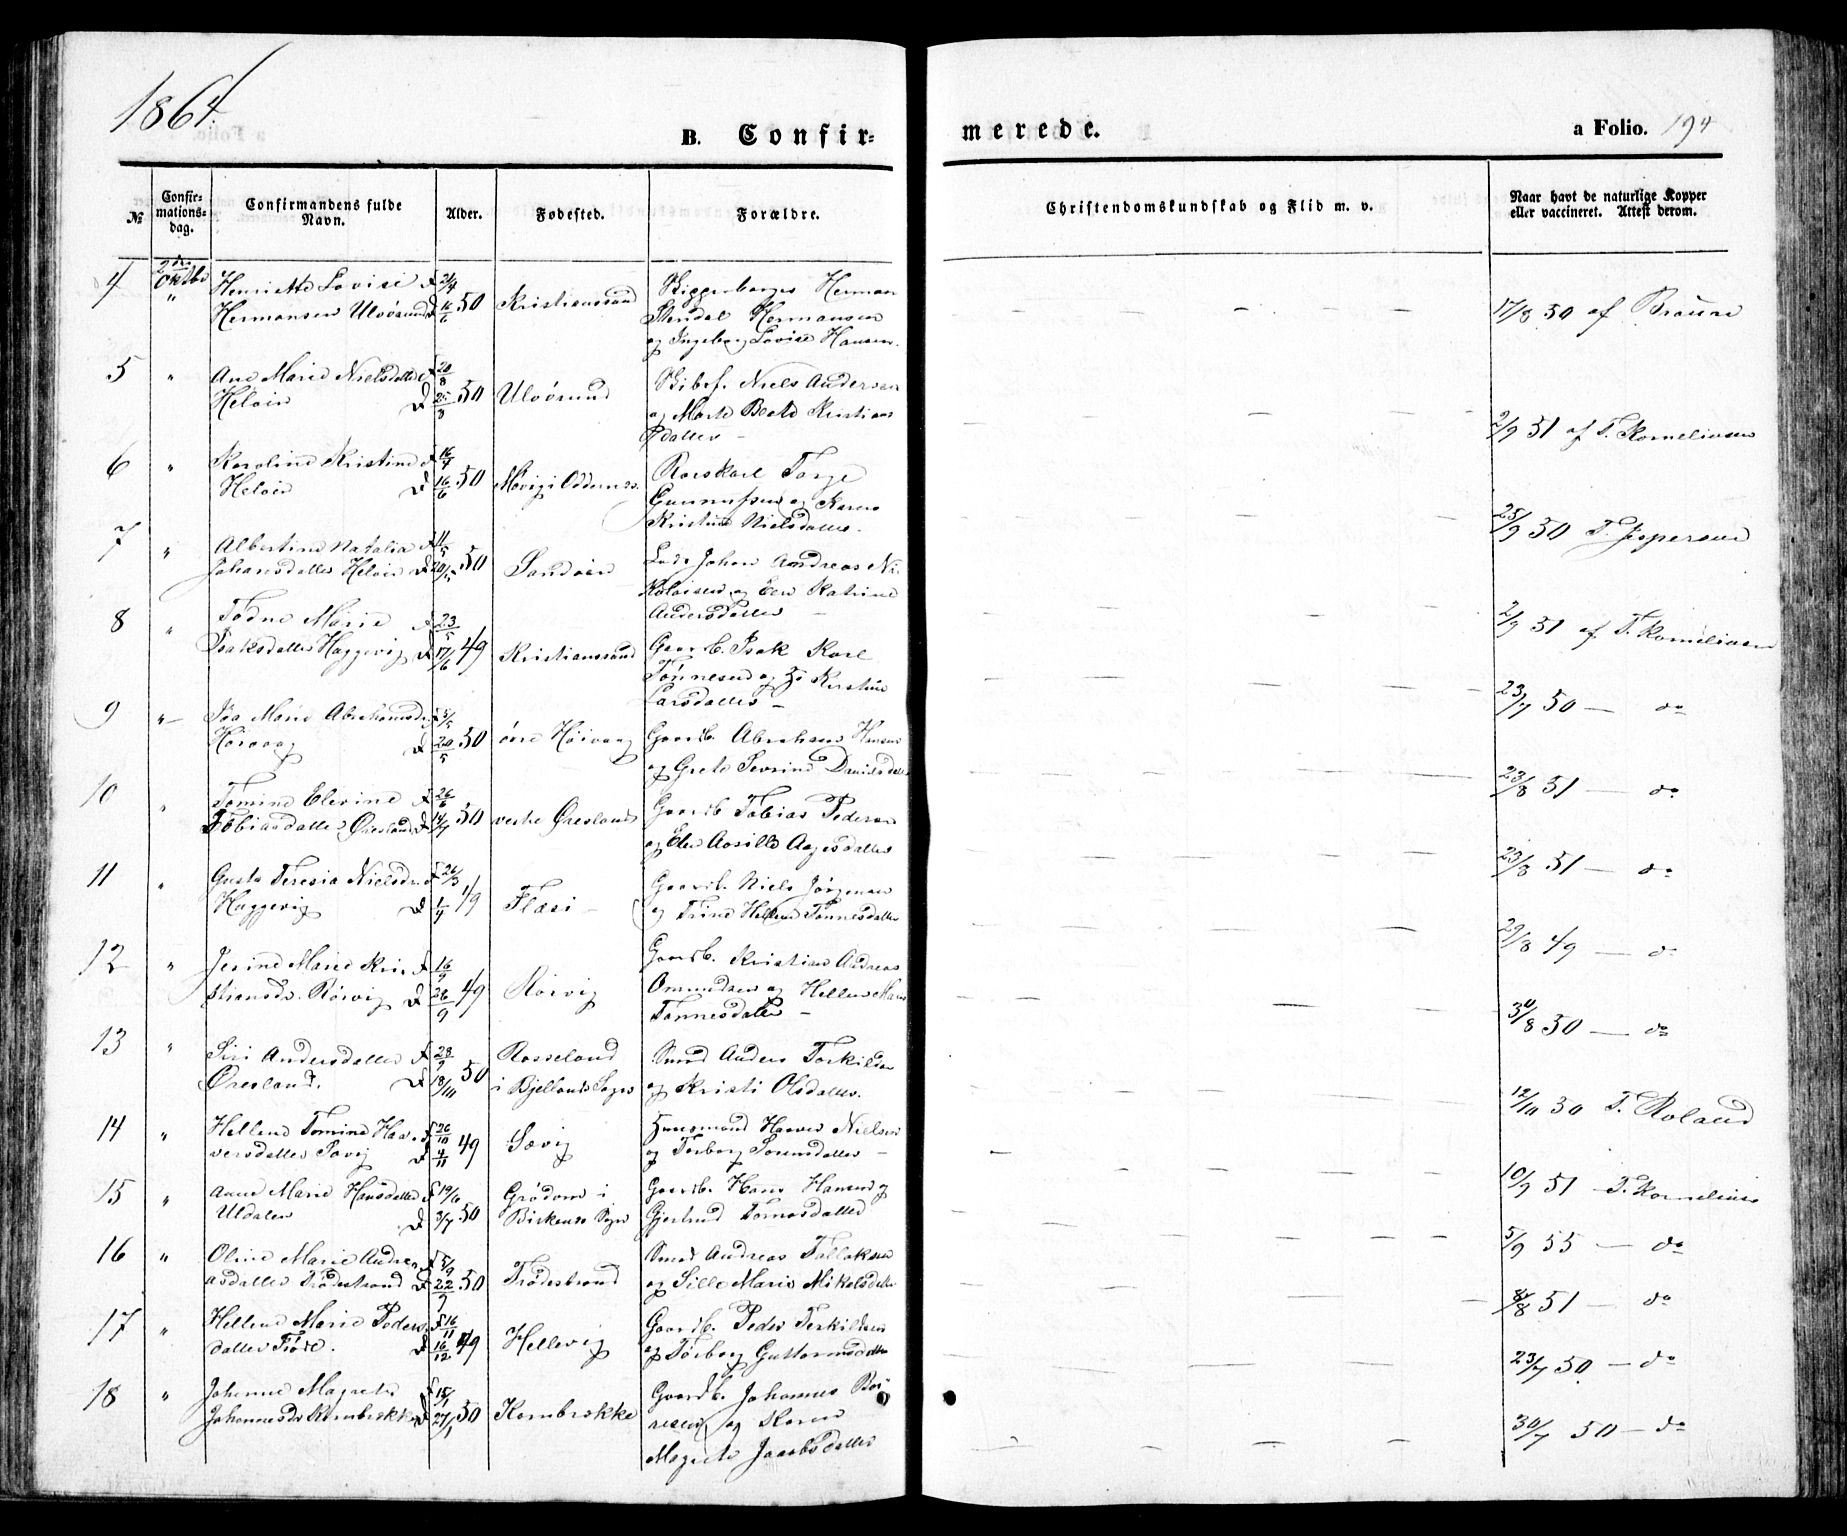 1864.
B. Confir-
merede.
a Folio. 194
№
Confir-
mations-
dag.
Confirmandens fulde
Navn.
Alder.
Fødested.
Forældre.
Christendomskundskab og Flid m. v.
Naar havt de naturlige Kopper
eller vaccineret. Attest derom.
4 2den Oktbr Henriette Lovise f 2/4
" Hermansen Ulvøsund d 16/6 50 Kristianssand
Herman
Stendal Hermansen
og Ingeborg Lovise Hansen.
17/8 50 af
5 " Ane Marie Nielsdatter f 20/8
Heløen d 25/8 50 Ulvøsund
Niels Andersen
og Marte Beate Kristians
datter –
2/9 51 af T. Korneliusen
6 " Karoline Kristine f 16/4
Heløen d 16/6 50 Møvig i Oddernes.
Torge
Gunnufsen og Karen
Kristine Nielsdatter.
25/9 50 T. Jespersen
7 " Albertine Natalia f 11/5
Johansdatter Heløen d 50 Sandøen
Lods Johan Andreas Ni-
kolaisen og Elen Katrine
Andersdatter –
2/9 51 af T. Korneliusen
8 " Tødne Marie f 23/5
Isaksdatter Haggevig d 17/6 49 Kristianssand
Gaardb. Isak Karl
Tønnesen og Kirstine
Larsdatter –
23/7 50 – do
9 " Marie Abrahamsdr. f 5/5
Høivaag d 20/5 50 øvre Høivaag
Gaardb. Abraham Hansen
og Grete Sevrine Davidsdatter
23/8 51 – do
10 " Tomine Elevine f 26/6
Tobiasdatter Øresland d 14/7 50 vestre Øresland
Gaardb Tobias Pedersen
og Elen Aasille Aagesdatter
23/8 51 – do
11 " Gusta Teresia Nielsdr. f 26/3
Haggevig d 1/4 49 Flæsi –
Gaardb. Niels Jørgensen
og Trine Hellene Tønnesdatter
29/8 49 – do
12 " Jerine Marie Kri- f 16/9
stiansdr. Rørvig d 26/9 49 Rørvig
Gaardb. Kristian Andreas
Omundsen og Hellene Marie
Tønnesdatter –
30/8 50 – do
13 " Siri Andersdatter f 28/9
Øresland. d 18/10 50 Rosseland
i Bjellands Sogn
Smed Anders Torkildsen
og Kristi Olsdatter.
12/10 50 T. Roland
14 " Hellene Tomine Haa- f 26/10
versdatter Søvig d 4/11 49 Søvig
Huusmand Haaver Nielsen
og Torborg Sørensdatter –
10/9 51 T. Kornelius
15 " Anne Marie Hansdatter f 19/6
Uldalen d 3/7 50 Grødom i
Birkenes Sogn
Gaardb. Hans Hansen og
Gjertrud Tomasdatter
5/9 55 – do
16 " Oline Marie Andre- f 5/9
asdatter Trødestrand d 22/9 50 Trødestrand
Smed Andreas Tellaksen
og Sille Marie Mikelsdatter
8/8 51 – do
17 " Hellene Marie Peders- f 16/11
datter Tróre. d 16/12 49 Hellevig
Gaardb. Peder Terkildsen
og Torborg Guttormsdatter
23/7 50 – do
18 " Johanne Magrete f 15/1
Johannesdr Kornbrekke d 27/1 50 Kornbrekke
Gaardb. Johannes
og Karen
Magrete Jacobsdatter
30/7 50 – do